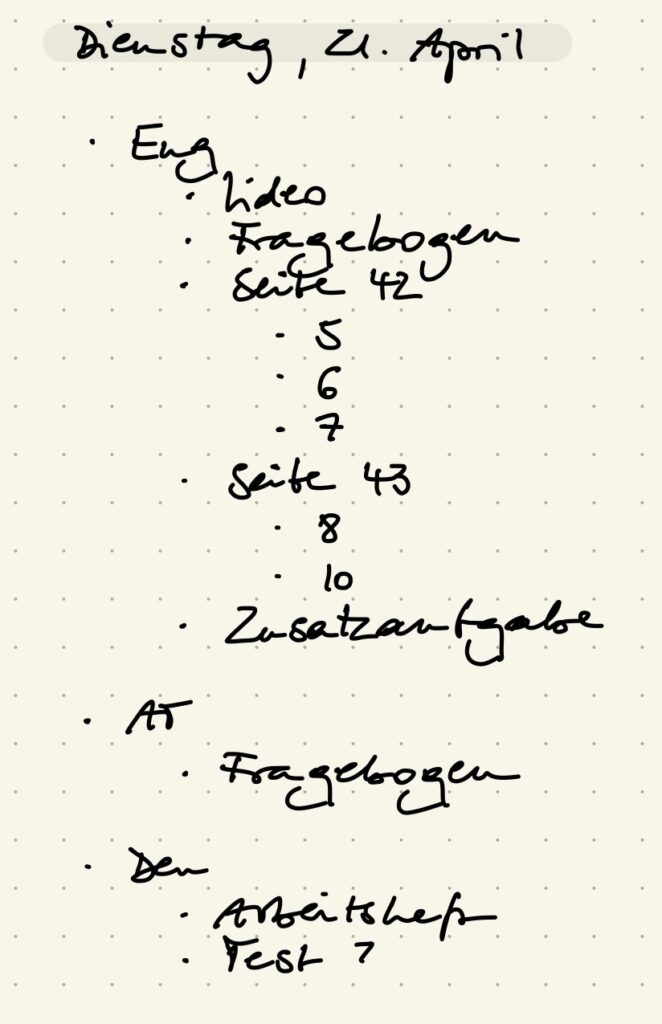 Dienstag, 21. April
· Eng
· Video
· Fragebogen
· Seite 42
- 5
· 6
- 7
· Seite 43
· 8
· 10
· Zusatzaufgabe
· AT
· Fragebogen
· Deu
· Arbeitsheft
· Test ?